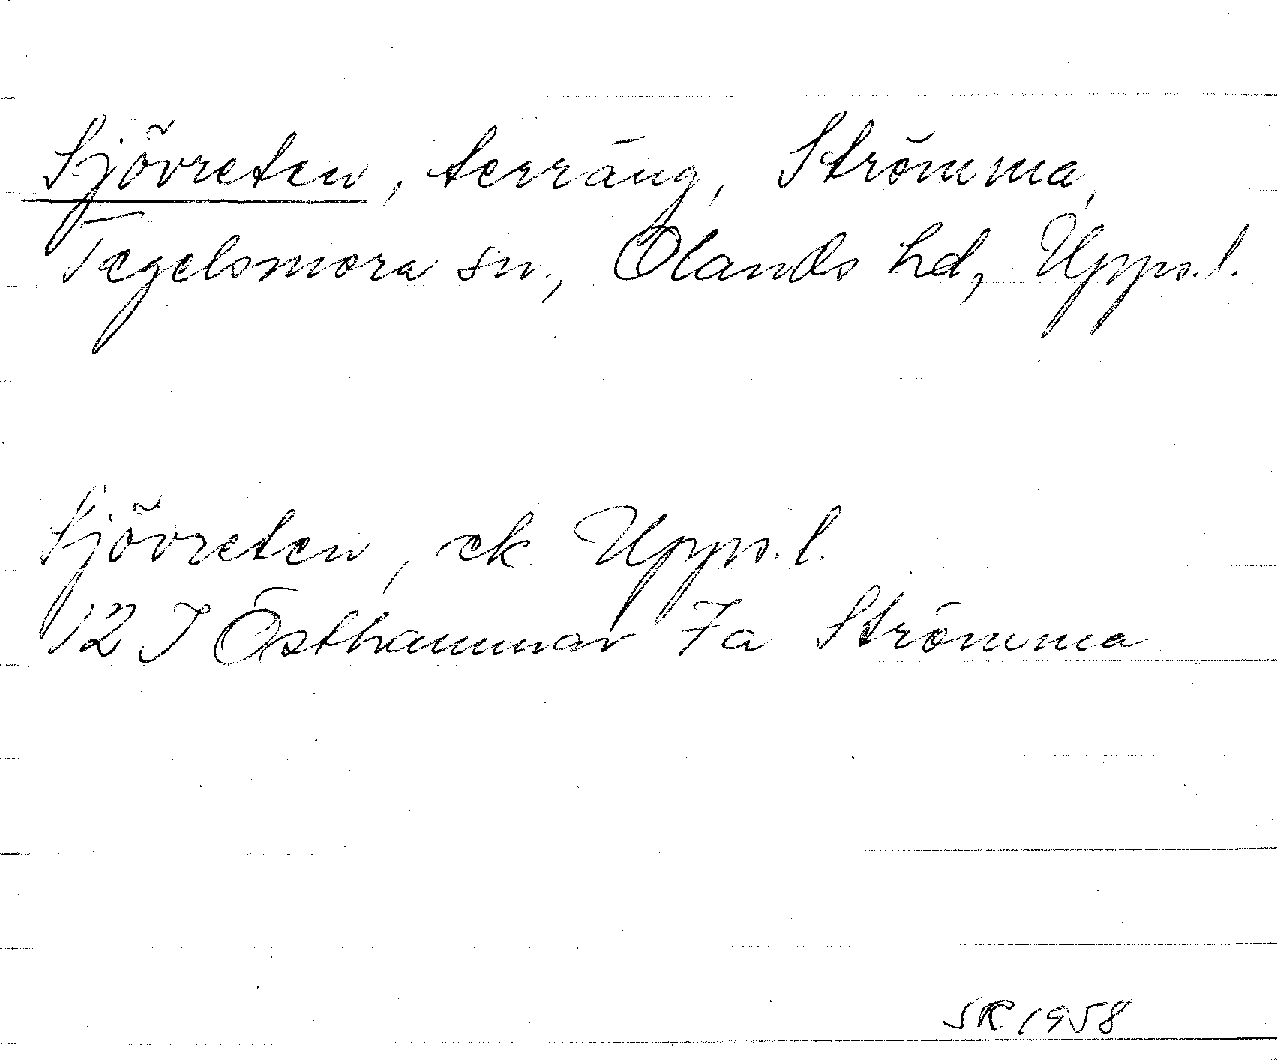 Sjövreten, terräng, Strömma,
Tegelsmora sn., Olands hd, Upps.l.
Sjövreten, ek Upps.l.
12 I Östhammar 7a Strömma
SR 1958